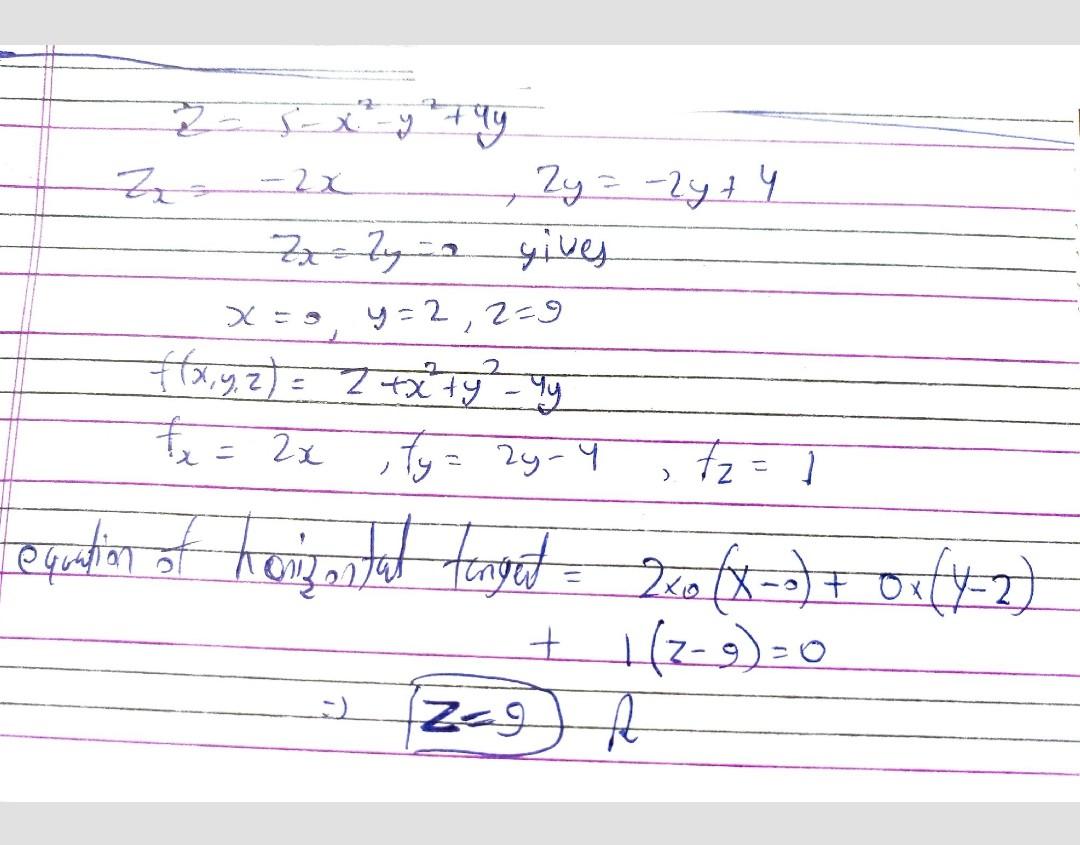 Z = 5 - x² - y² + 4y
Zx = -2x , Zy = -2y + 4
Zx = Zy = 0 gives
x = 0, y = 2, z = 9
f(x,y,z) = Z + x² + y² - 4y
fx = 2x , fy = 2y - 4 , fz = 1
equation of horizontal tangent = 2x0 (X-0) + 0x(Y-2)
+ 1(z-9) = 0
=) Z = 9